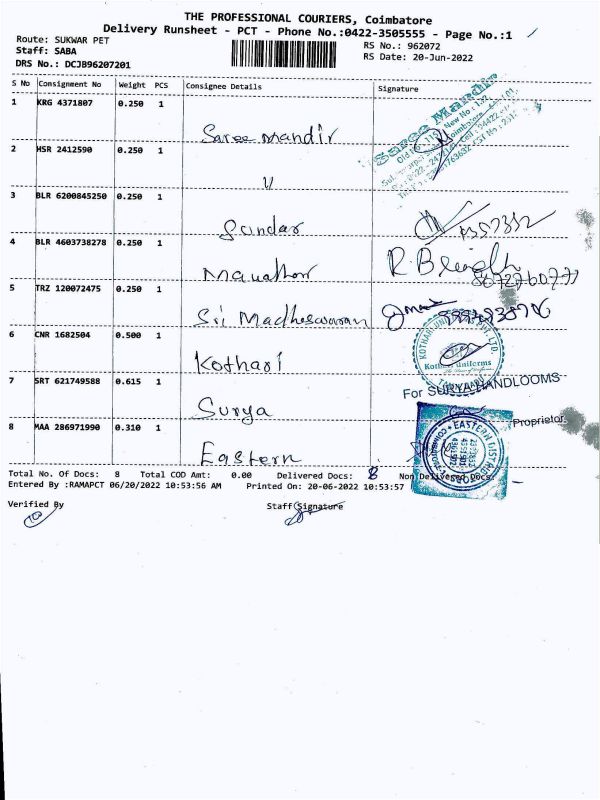 THE PROFESSIONAL COURIERS, Coimbatore
Delivery Runsheet - PCT - Phone No.:0422-3505555 - Page No.:1
Route: SUKWAR PET
RS No.: 962072
Staff: SABA
RS Date: 20-Jun-2022
DRS No.: DCJB96207201
S No Consignment No Weight PCS Consignee Details Signature
1 KRG 4371807 0.250 1
Saree mandir
Saree Mandir
2 HSR 2412590 0.250 1
3 BLR 6200845250 0.250 1
Sundar
4 BLR 4603738278 0.250 1
5 TRZ 120072475 0.250 1
Sri Madheswaran
6 CNR 1682504 0.500 1
Kothari
Kothari Uniforms
7 SRT 621749588 0.615 1
For SURYA HANDLOOMS
Surya
Proprietor
8 MAA 286971990 0.310 1
Eastern
EASTERN
Total No. Of Docs: 8 Total COD Amt: 0.00 Delivered Docs: 8 Non Delivered Docs:
Entered By :RAMAPCT 06/20/2022 10:53:56 AM Printed On: 20-06-2022 10:53:57
Verified By Staff Signature